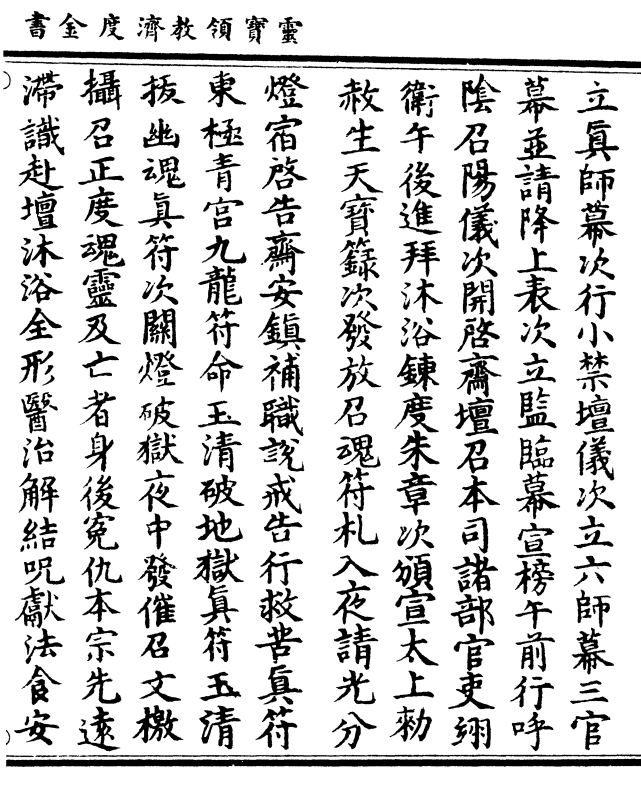 靈寶領教濟度金書
立眞師幕次行小禁壇儀次立六師幕三官
幕並請降上表次立監臨幕宣榜午前行呼
陰召陽儀次開啓齋壇召本司諸部官吏翊
衛午後進拜沐浴鍊度朱章次頒宣太上勑
赦生天寶籙次發放召魂符札入夜請光分
燈宿啓告齋安鎮補職說戒告行救苦眞符
東極青宮九龍符命玉清破地獄眞符玉清
拔幽魂眞符次關燈破獄夜中發催召文檄
攝召正度魂靈及亡者身後冤仇本宗先遠
滯識赴壇沐浴全形醫治解結呪獻法食安